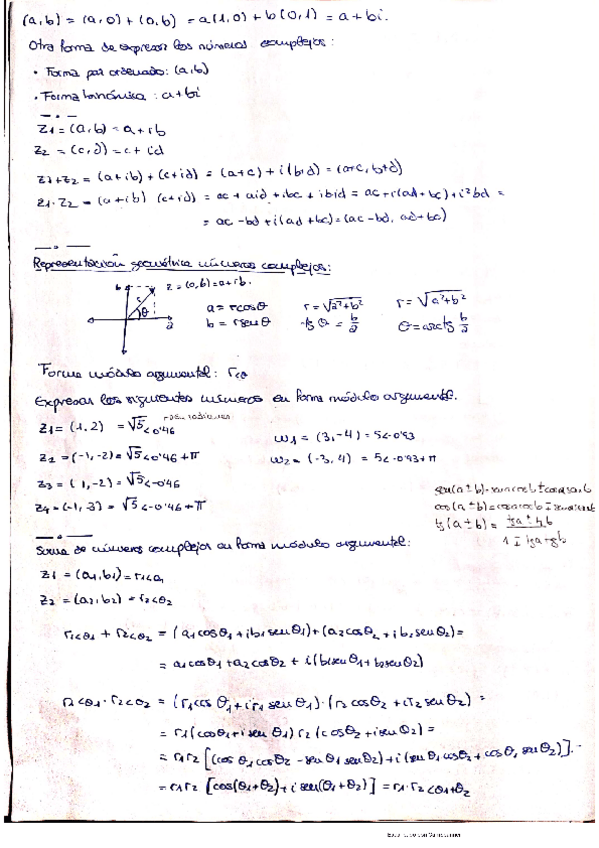 (a,b) = (a,0) + (0,b) = a(1,0) + b(0,1) = a + bi.
Otra forma de expresar los números complejos:
• Forma par ordenado: (a,b)
• Forma binómica : a+bi
Z1 = (a,b) = a+ib
Z2 = (c,d) = c+id
Z1+Z2 = (a+ib) + (c+id) = (a+c) + i(b+d) = (a+c, b+d)
Z1·Z2 = (a+ib) (c+id) = ac + aid + ibc + ibid = ac + i(ad+bc) + i²bd =
= ac - bd + i(ad+bc) = (ac-bd, ad+bc)
Representación geométrica números complejos:
b z = (a,b) = a+ib.
r θ a
a = r cosθ r = √a²+b² r = √a²+b²
b = r senθ tg θ = b/a θ = arctg b/a
Forma módulo argumental: r<θ
Expresar los siguientes números en forma módulo argumental.
Z1 = (1,2) = √5<0'46 radianes
Z2 = (-1,-2) = √5<0'46+π
Z3 = (1,-2) = √5<-0'46
Z4 = (-1,3) = √5<-0'46+π
w1 = (3,-4) = 5<-0'93
w2 = (-3,4) = 5<-0'93+π
sen(a±b) = sena cosb ± cosa senb
cos(a±b) = cosa cosb ∓ sena senb
tg(a±b) = tga ± tgb / 1 ∓ tga·tgb
Suma de números complejos en forma módulo argumental:
Z1 = (a1,b1) = r1<θ1
Z2 = (a2,b2) = r2<θ2
r1<θ1 + r2<θ2 = (a1cosθ1 + ib1senθ1) + (a2cosθ2 + ib2senθ2) =
= a1cosθ1 + a2cosθ2 + i(b1senθ1 + b2senθ2)
r1<θ1 · r2<θ2 = (r1cosθ1 + ir1senθ1)·(r2cosθ2 + ir2senθ2) =
= r1(cosθ1 + isenθ1) r2(cosθ2 + isenθ2) =
= r1r2 [(cosθ1cosθ2 - senθ1senθ2) + i(senθ1cosθ2 + cosθ1senθ2)].
= r1r2 [cos(θ1+θ2) + isen(θ1+θ2)] = r1·r2<θ1+θ2